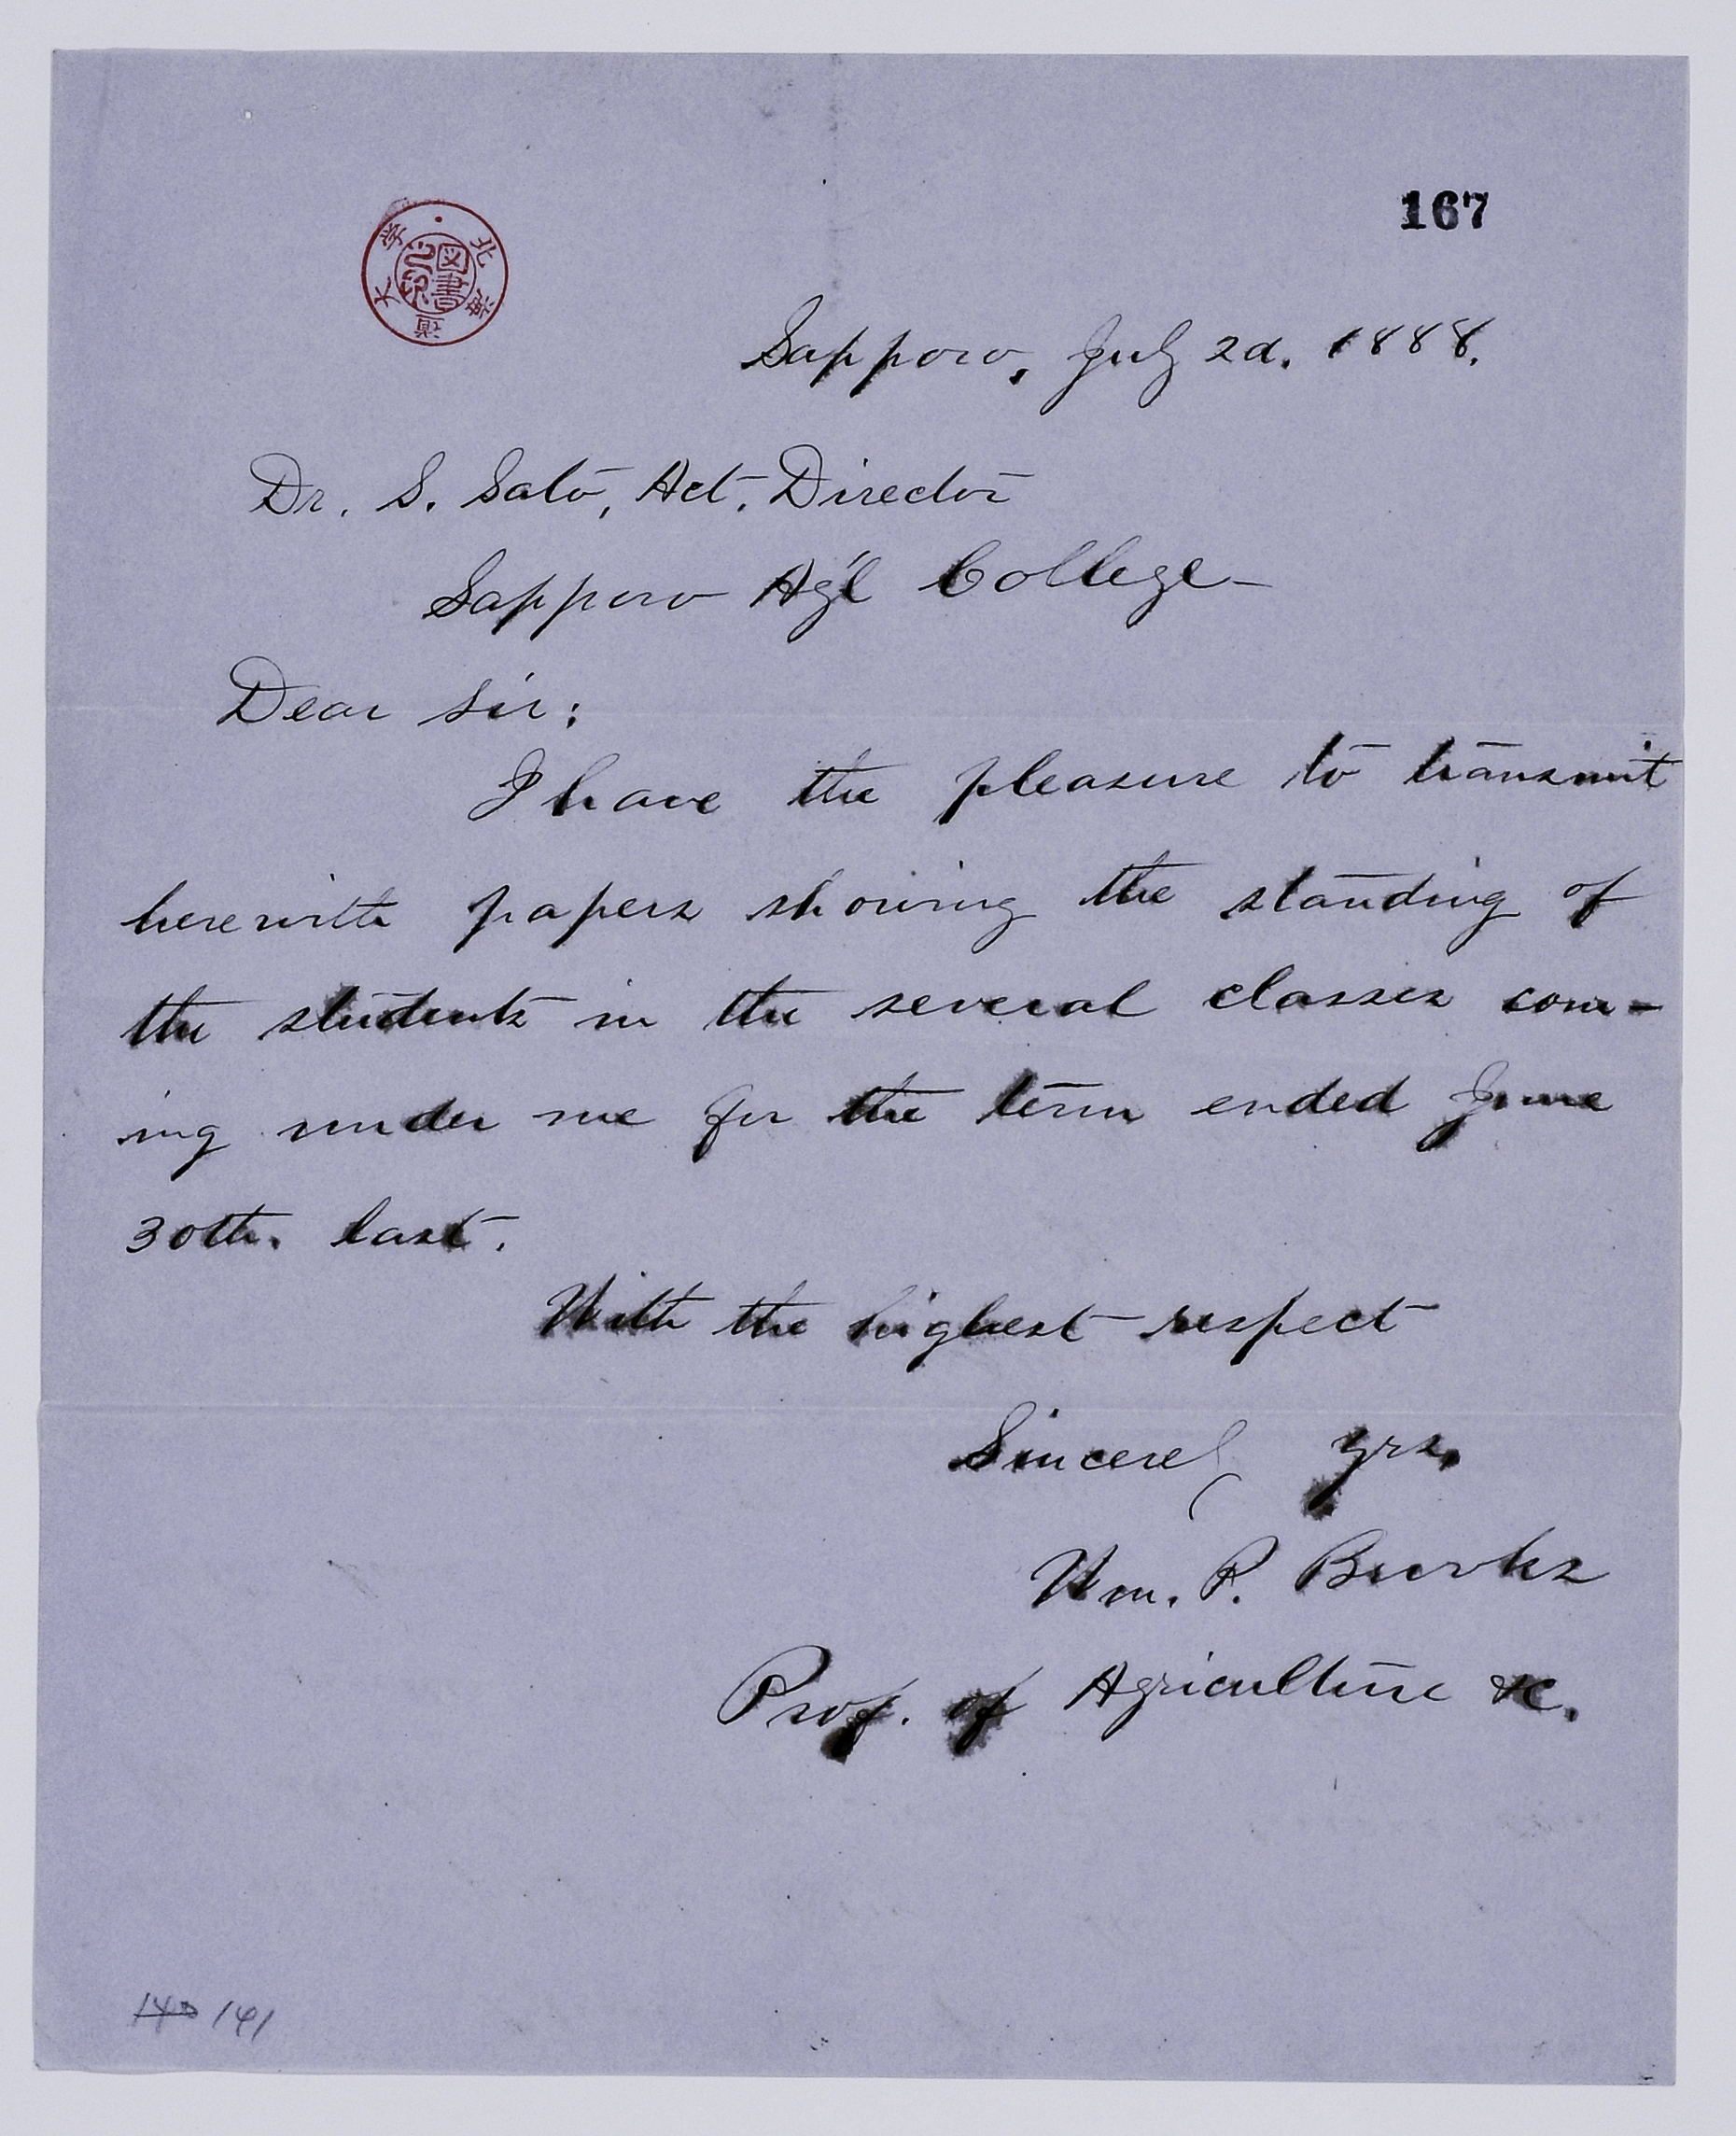 167
北海道大学
図書之印
Sapporo, July 2d. 1888.
Dr. S. Sato, Act. Director
Sapporo Ag'l College
Dear Sir:
I have the pleasure to transmit
herewith papers showing the standing of
the students in the several classes com-
ing under me for the term ended June
30th. last.
With the highest respect
Sincerely yrs.
Wm. P. Brooks
Prof. of Agriculture &c.
140 141